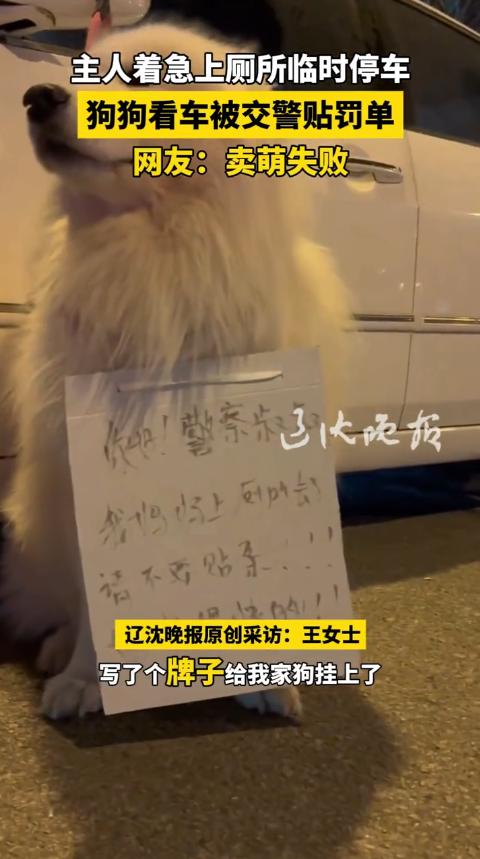 主人着急上厕所临时停车
狗狗看车被交警贴罚单
网友：卖萌失败
你好！警察叔叔
辽沈晚报
我妈妈上厕所去了
请不要贴条...！！！
辽沈晚报原创采访：王女士
写了个牌子给我家狗挂上了